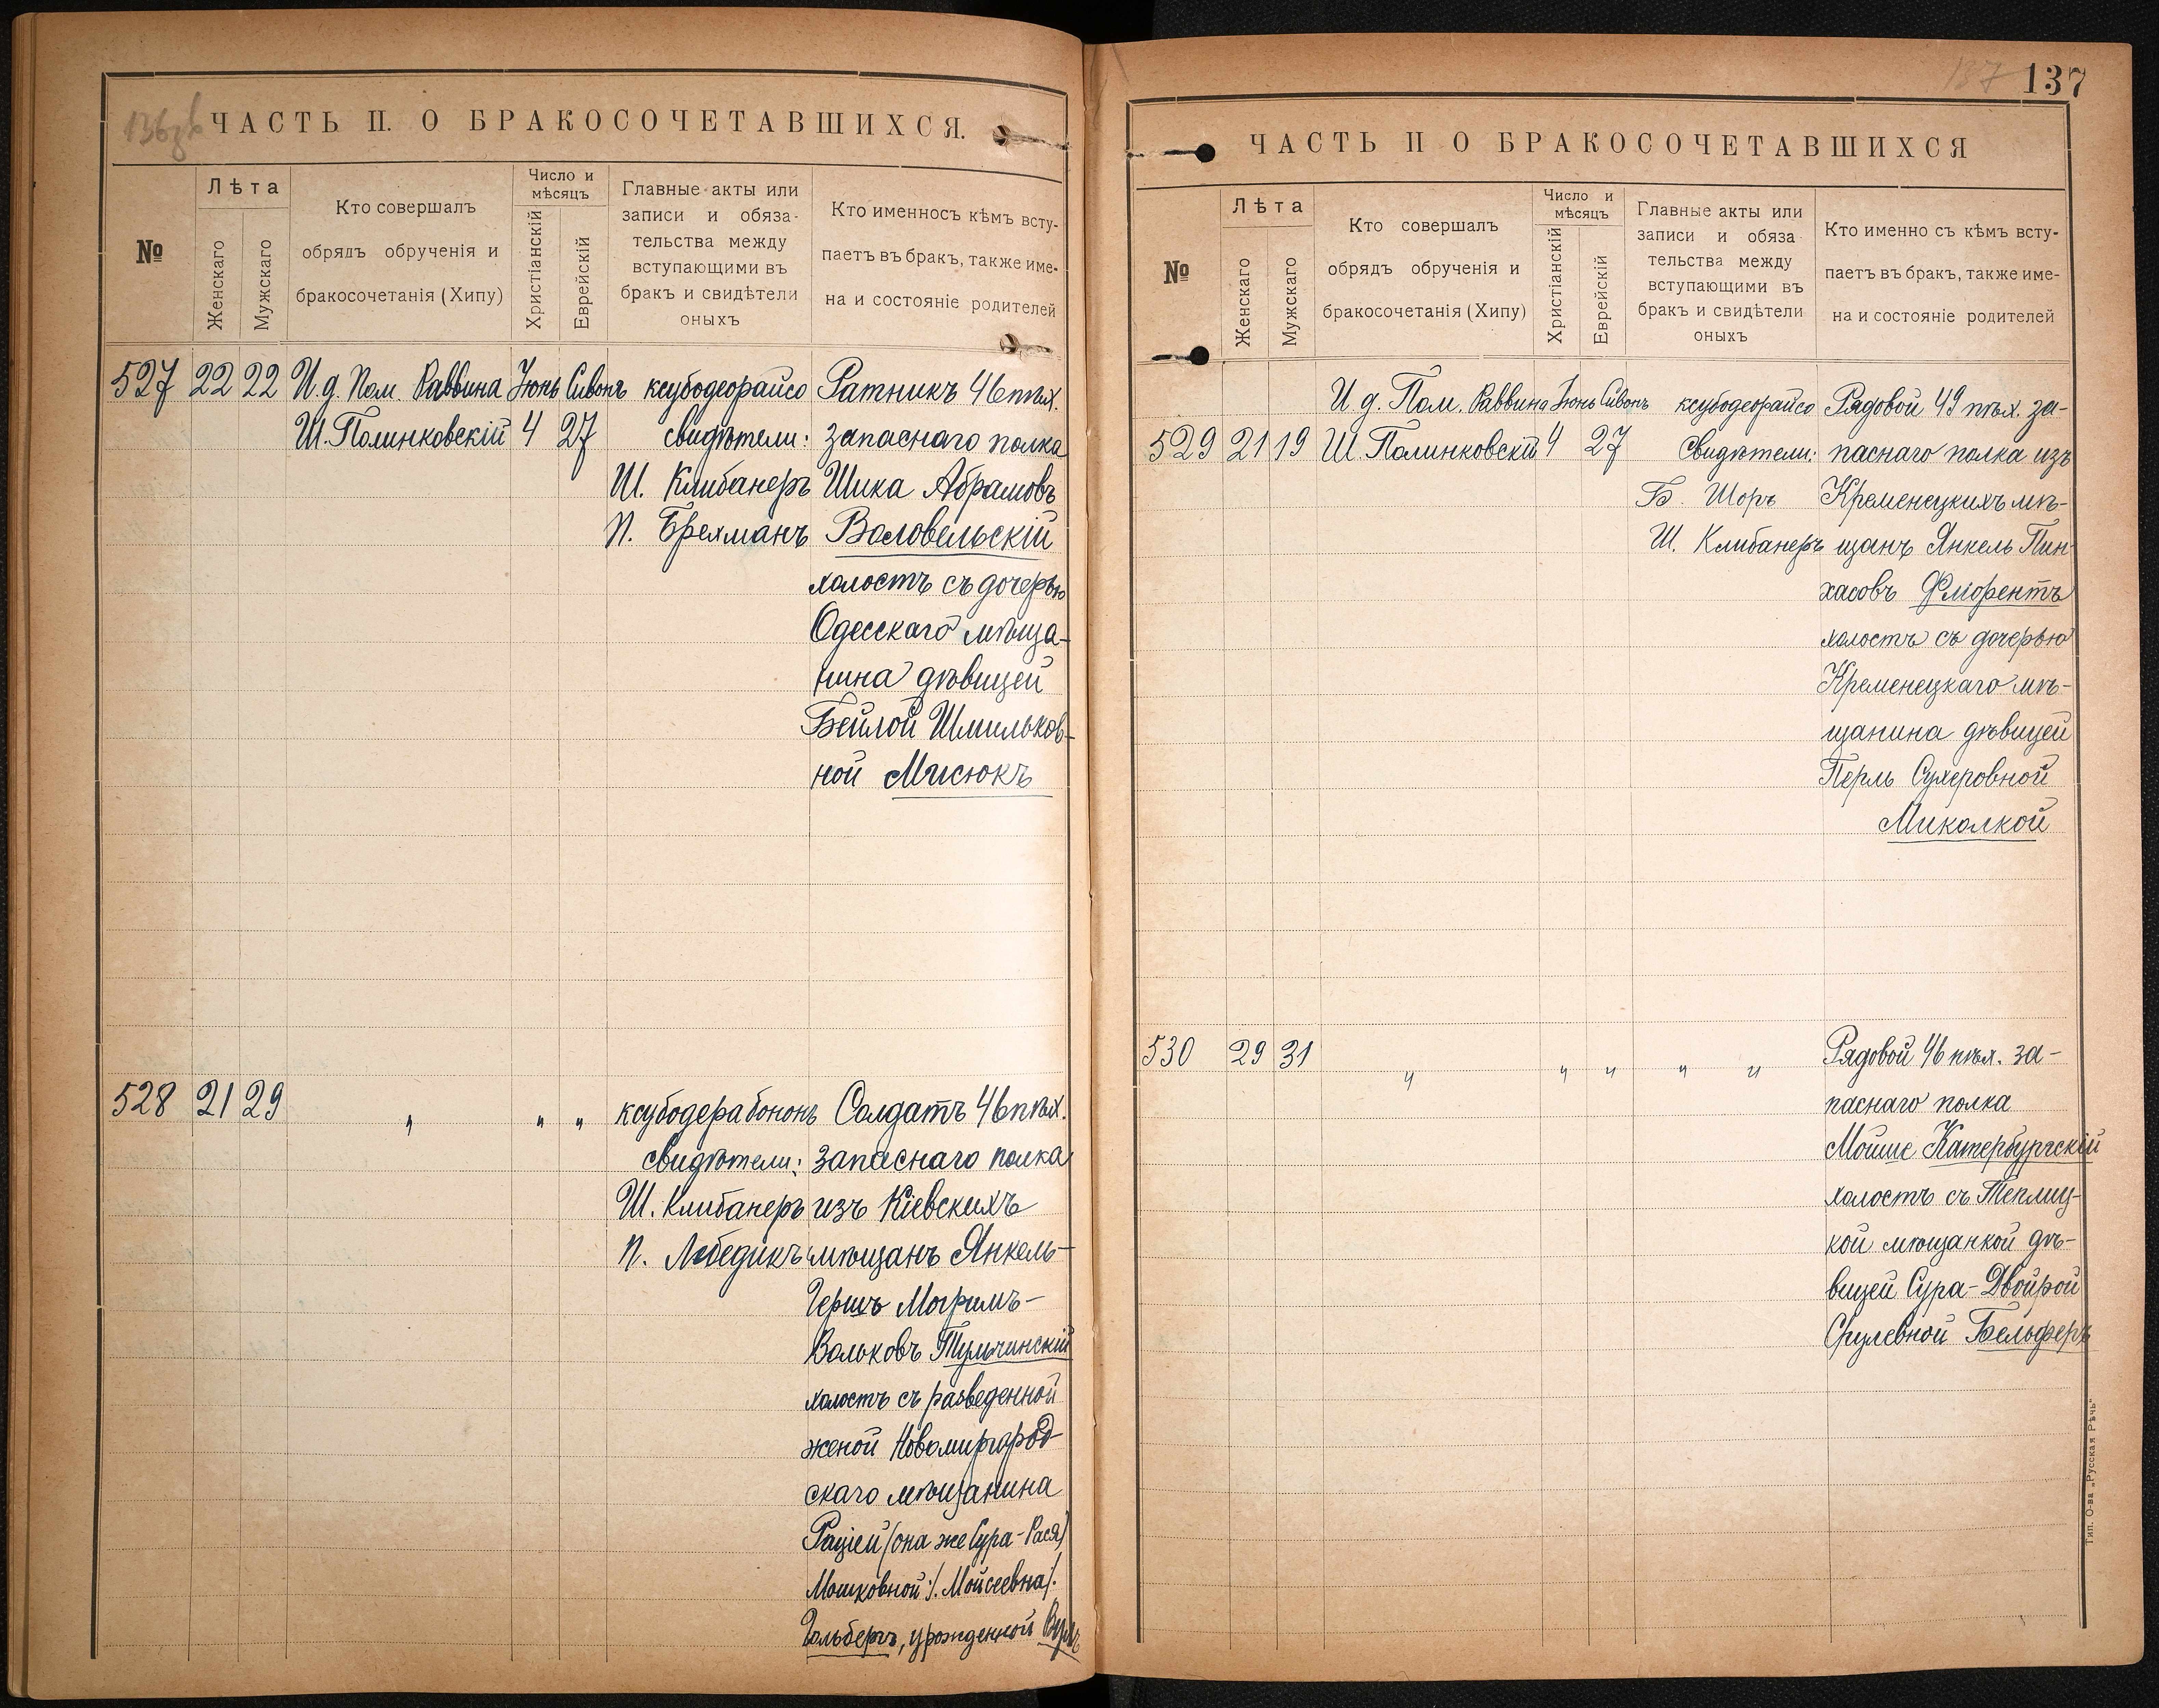 136об
ЧАСТЬ II. О БРАКОСОЧЕТАВШИХСЯ.
№
Лѣта
Женскаго
Мужскаго
Кто совершалъ
обрядъ обрученія и
бракосочетанія (Хипу)
Число и
мѣсяцъ
Христіанскій
Еврейскій
Главные акты или
записи и обяза-
тельства между
вступающими въ
бракъ и свидѣтели
оныхъ
Кто именносъ кѣмъ всту-
паетъ въ бракъ, также име-
на и состояніе родителей
527 22 22 И. д. Пом. Раввина Іюнь Сивонъ ксубодеорайсо Ратникъ 46 пѣх.
Ш. Полинковскій 4 27 свидѣтели: запаснаго полка
Ш. Клибанеръ Шика Абрамовъ
П. Брехманъ Воловельскій
холостъ съ дочерью
Одесскаго мѣща-
нина дѣвицей
Бейлой Шмильков-
ной Мисюкъ
528 21 29 " " " ксубодерабононъ Солдатъ 46 пѣх.
свидѣтели: запаснаго полка
Ш. Клибанеръ изъ Кіевскихъ
П. Лебедикъ мѣщанъ Янкель-
Гершъ Мотримъ-
Вольковъ Тульчинскій
холостъ съ разведенной
женой Новомиргород-
скаго мѣщанина
Раціей (она же Сура-Рася)
Мошковной /. Мойсеевна /.
Гольбергъ, урожденной
137
137
ЧАСТЬ II О БРАКОСОЧЕТАВШИХСЯ
№
Лѣта
Женскаго
Мужскаго
Кто совершалъ
обрядъ обрученія и
бракосочетанія (Хипу)
Число и
мѣсяцъ
Христіанскій
Еврейскій
Главные акты или
записи и обяза
тельства между
вступающими въ
бракъ и свидѣтели
оныхъ
Кто именно съ кѣмъ всту-
паетъ въ бракъ, также име-
на и состояніе родителей
И д. Пом. Раввина Іюнь Сивонъ ксубодеорайсо Рядовой 49 пѣх. за-
529 21 19 Ш. Полинковскій 4 27 Свидѣтели: паснаго полка изъ
Б. Шоръ Кременецкихъ мѣ-
Ш. Клибанеръ щанъ Янкель Пин-
хасовъ Фморентъ
холостъ съ дочерью
Кременецкаго мѣ-
щанина дѣвицей
Перль Сухеровной
Миколкой
530 29 31 " " " " " Рядовой 46 пѣх. за-
паснаго полка
Мойше Катербургскій
холостъ съ Теплиц-
кой мѣщанкой дѣ-
вицей Сура-Двойрой
Срулевной Бельферъ
Тип. О-ва „Русская Рѣчь"